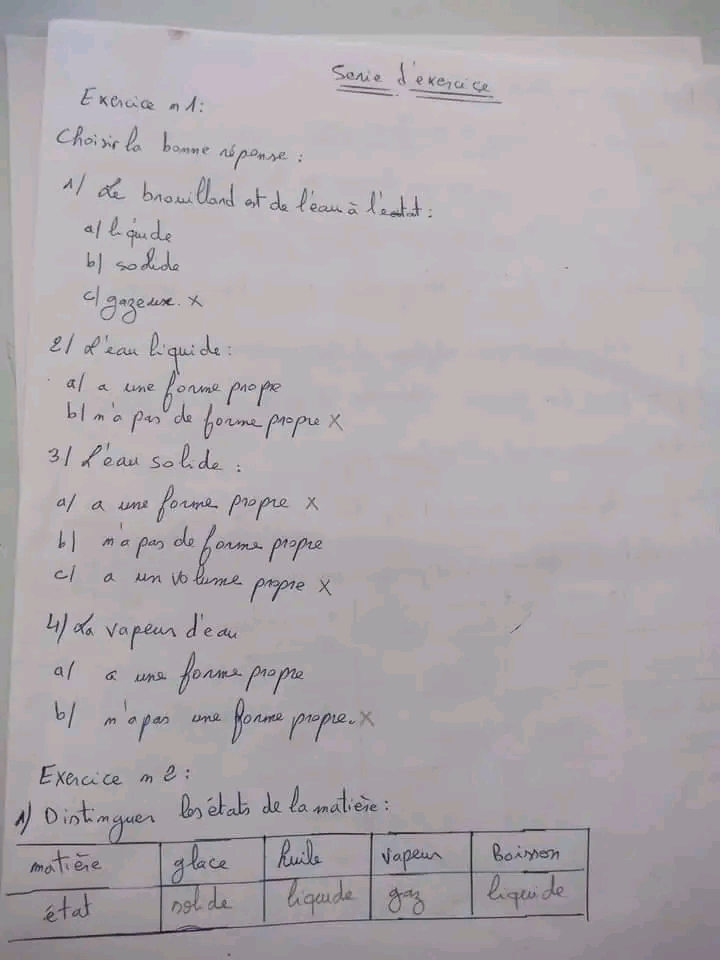 Serie d'exercice
Exercice n 1:
Choisir la bonne réponse :
1/ Le brouillard est de l'eau à l'etat :
a/ liquide
b/ solide
c/ gazeuse. x
2/ L'eau liquide :
a/ a une forme propre
b/ n'a pas de forme propre x
3/ L'eau solide :
a/ a une forme propre x
b/ n'a pas de forme propre
c/ a un volume propre x
4/ La vapeur d'eau
a/ a une forme propre
b/ n'a pas une forme propre. x
Exercice n 2 :
1/ Distinguer les états de la matière :
matière glace huile vapeur Boisson
état solide liquide gaz liquide